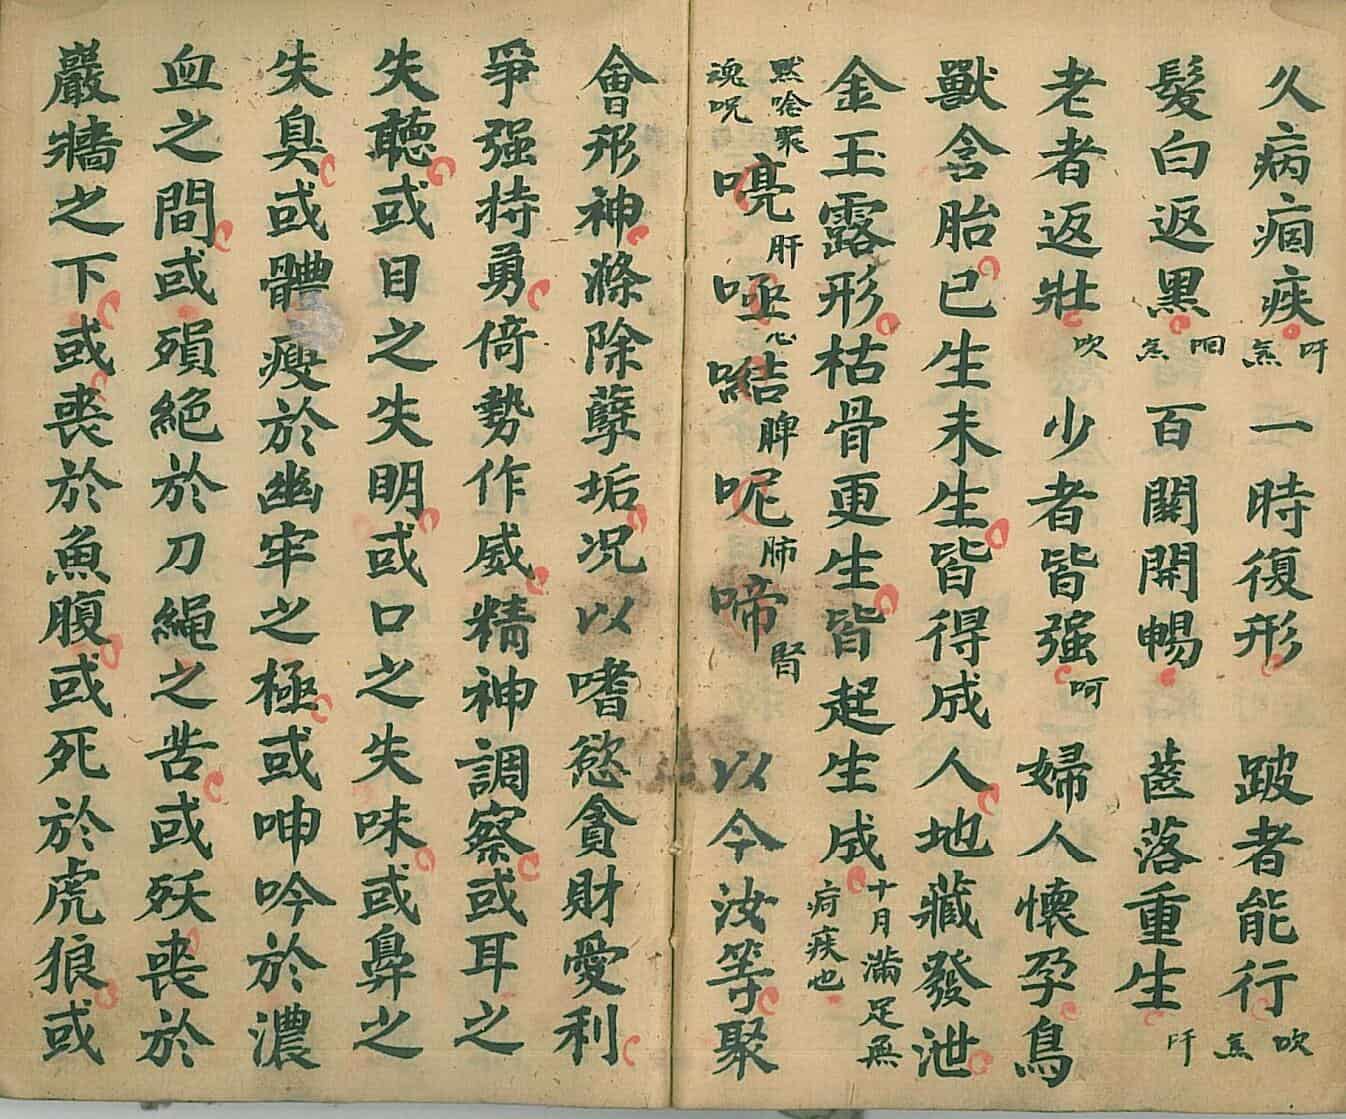 久病痼疾吁炁一時復形跛者能行吹炁
髮白返黑呬炁百關開暢茝落重生吁
老者返壯吹少者皆强呵婦人懷孕鳥
獸含胎已生未生皆得成人地藏發泄
金玉露形枯骨更生皆起生成十月滿足無疴疾也
默唸聚魂呪喨肝啞心嚡脾呢肺啼腎以今汝等聚
會形神滌除孽垢况以嗜慾貪財愛利
爭强持勇倚勢作威精神調察或耳之
失聽或目之失明或口之失味或鼻之
失臭或體瘦於幽牢之極或呻吟於濃
血之間或殞絕於刀繩之苦或殀喪於
嚴牆之下或喪於魚腹或死於虎狼或